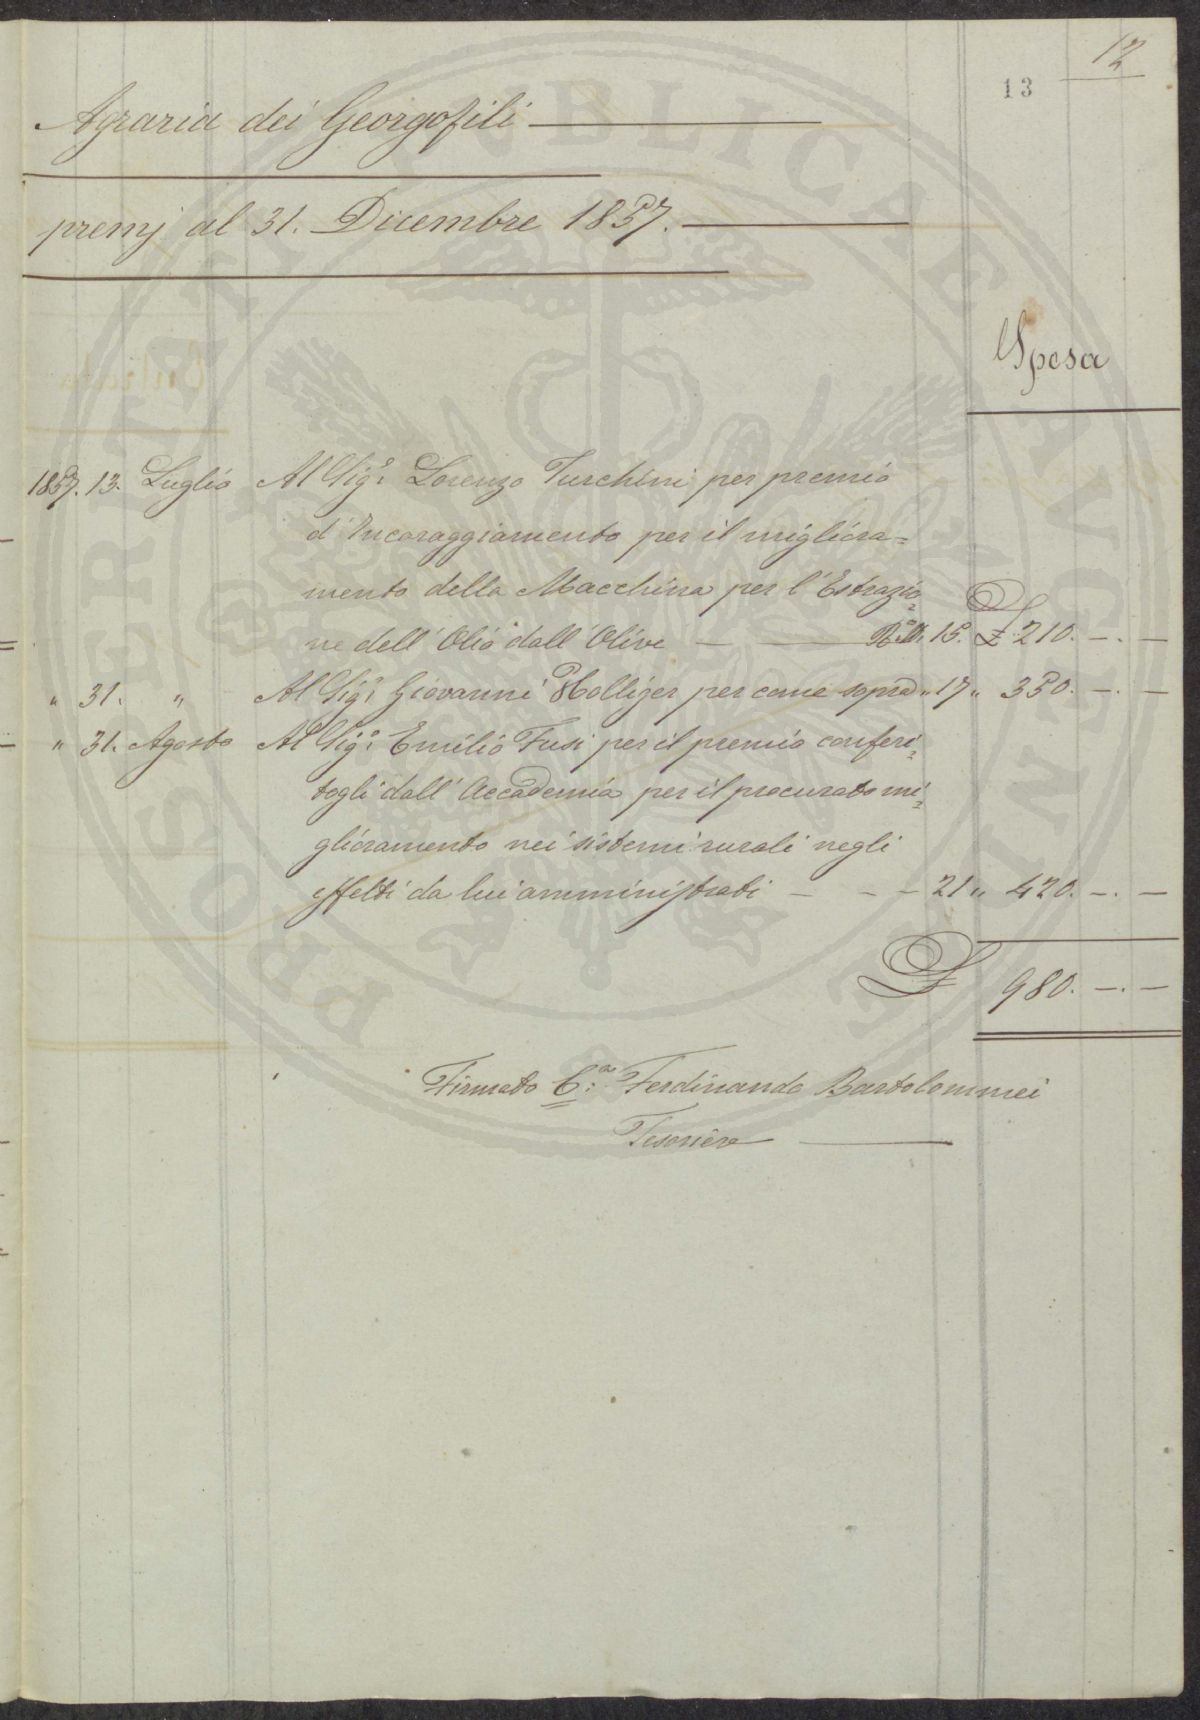 12
13
Agraria dei Georgofili
premj al 31. Dicembre 1857.
Spesa
1857. 13. Luglio Al Sigr. Lorenzo Turchini per premio
d'Incoraggiamento per il migliora=
mento della Macchina per l'Estrazio=
ne dell'Olio dall'Olive — — 15. £ 210. —. —
" 31. " Al Sigr. Giovanni Holliger per come sopra " 17 " 350. —. —
" 31. Agosto Al Sigr. Emilio Fusi per il premio conferi=
togli dall'Accademia per il procurato mi=
glioramento nei sistemi rurali negli
affetti da lui amministrati — — — 21 " 420. —. —
£ 980. —. —
Firmato C: Ferdinando Bartolommei
Tesoriere
PROSPERITATI PUBLICAE AUGENDAE